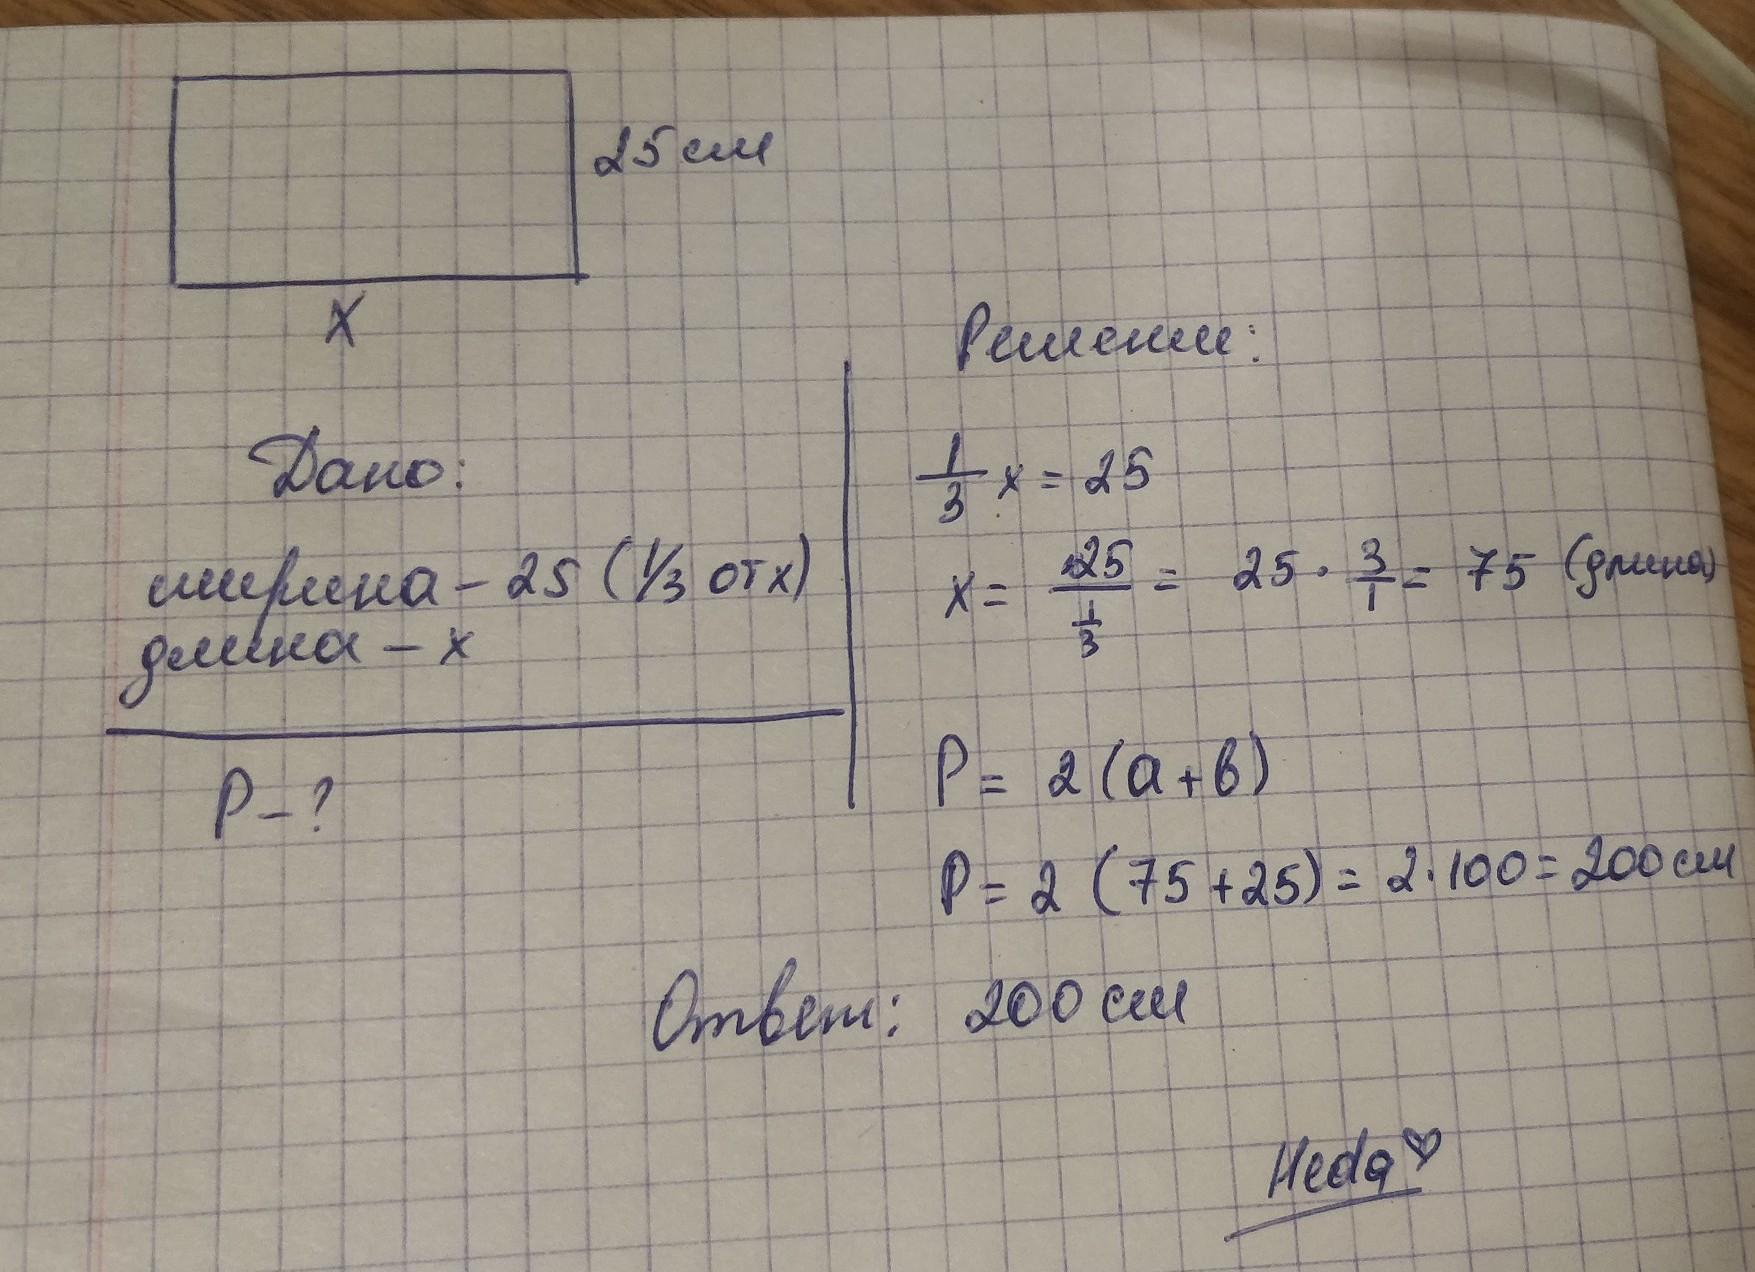 25 см
x
Дано:
ширина – 25 (1/3 от x)
длина – x
P – ?
Решение:
1/3 x = 25
x = 25/(1/3) = 25 · 3/1 = 75 (длина)
P = 2 (a + b)
P = 2 (75 + 25) = 2 · 100 = 200 см
Ответ: 200 см
Heda♡